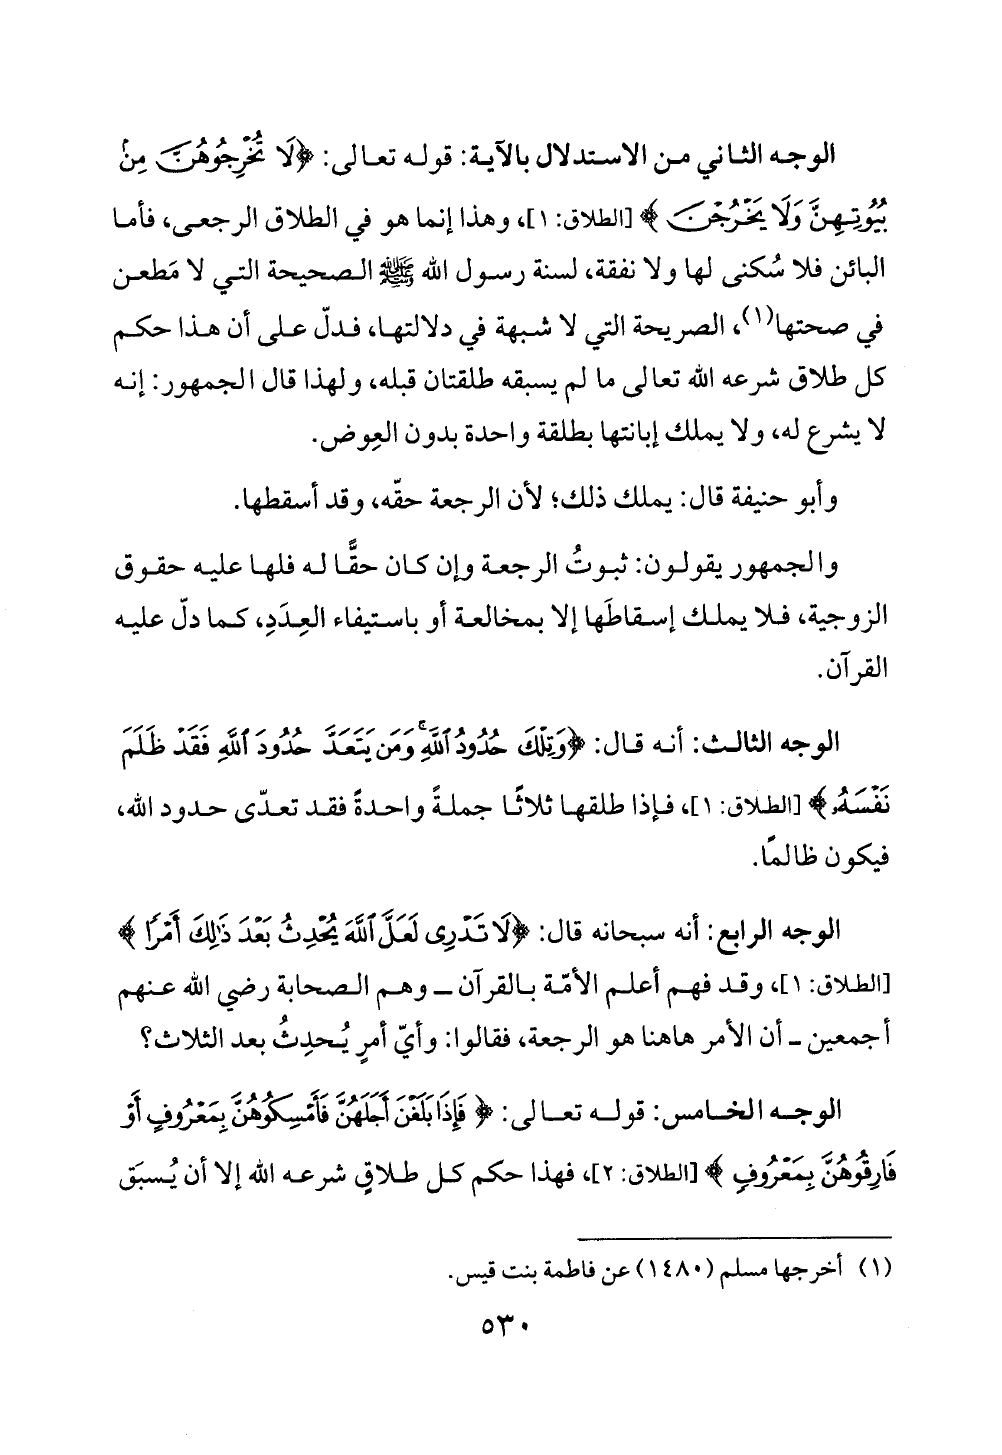 الوجه الثاني من الاستدلال بالآية: قوله تعالى: ﴿لَا تُخْرِجُوهُنَّ مِنْ
بُيُوتِهِنَّ وَلَا يَخْرُجْنَ﴾ [الطلاق: ١]، وهذا إنما هو في الطلاق الرجعي، فأما
البائن فلا سُكنى لها ولا نفقة، لسنة رسول الله ﷺ الصحيحة التي لا مَطعن
في صحتها(١)، الصريحة التي لا شبهة في دلالتها، فدلّ على أن هذا حكم
كل طلاق شرعه الله تعالى ما لم يسبقه طلقتان قبله، ولهذا قال الجمهور: إنه
لا يشرع له، ولا يملك إبانتها بطلقة واحدة بدون العِوض.
وأبو حنيفة قال: يملك ذلك؛ لأن الرجعة حقّه، وقد أسقطها.
والجمهور يقولون: ثبوتُ الرجعة وإن كان حقًّا له فلها عليه حقوق
الزوجية، فلا يملك إسقاطَها إلا بمخالعة أو باستيفاء العِدَدِ، كما دلّ عليه
القرآن.
الوجه الثالث: أنه قال: ﴿وَتِلْكَ حُدُودُ ٱللَّهِ ۚ وَمَن يَتَعَدَّ حُدُودَ ٱللَّهِ فَقَدْ ظَلَمَ
نَفْسَهُۥ﴾ [الطلاق: ١]، فإذا طلقها ثلاثًا جملةً واحدةً فقد تعدّى حدود الله،
فيكون ظالمًا.
الوجه الرابع: أنه سبحانه قال: ﴿لَا تَدْرِى لَعَلَّ ٱللَّهَ يُحْدِثُ بَعْدَ ذَٰلِكَ أَمْرًا﴾
[الطلاق: ١]، وقد فهم أعلم الأمّة بالقرآن ـ وهم الصحابة رضي الله عنهم
أجمعين ـ أن الأمر هاهنا هو الرجعة، فقالوا: وأيّ أمرٍ يُحدِثُ بعد الثلاث؟
الوجه الخامس: قوله تعالى: ﴿فَإِذَا بَلَغْنَ أَجَلَهُنَّ فَأَمْسِكُوهُنَّ بِمَعْرُوفٍ أَوْ
فَارِقُوهُنَّ بِمَعْرُوفٍ﴾ [الطلاق: ٢]، فهذا حكم كل طلاقٍ شرعه الله إلا أن يُسبَق
(١) أخرجها مسلم (١٤٨٠) عن فاطمة بنت قيس.
٥٣٠